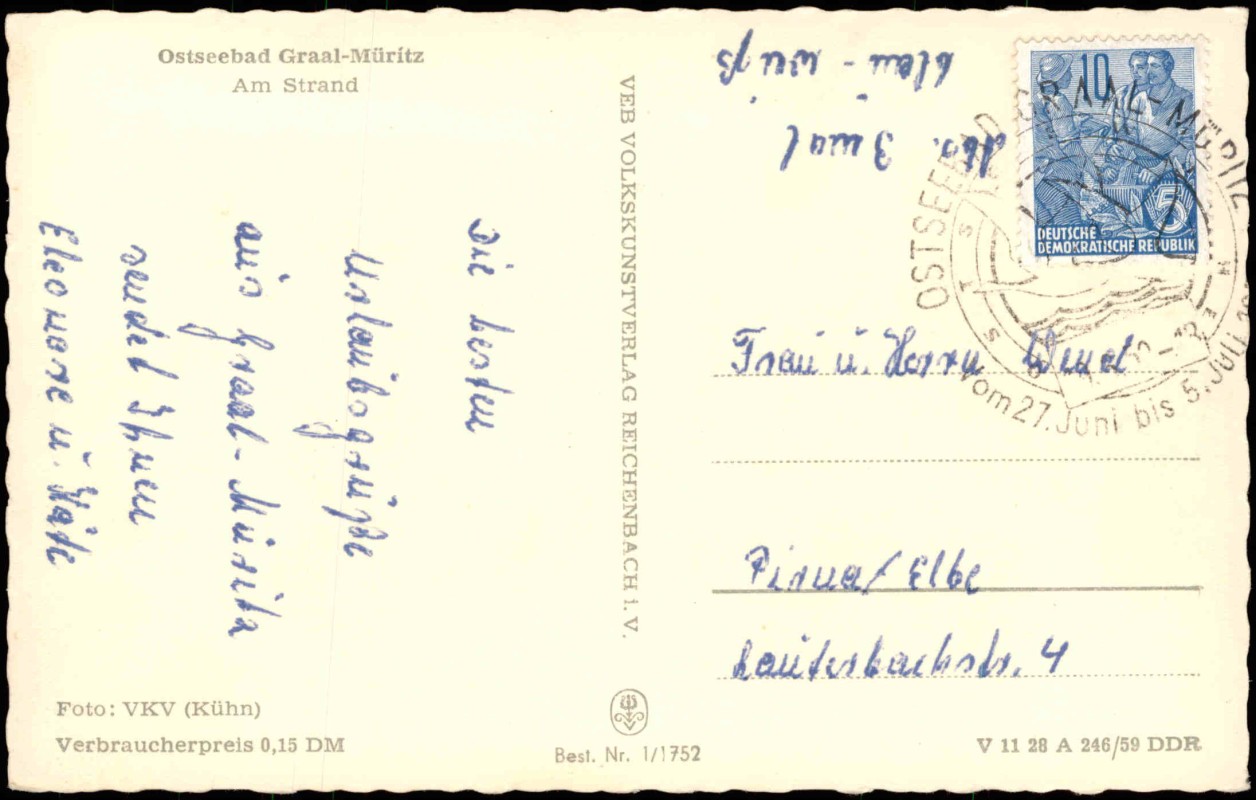 Ostseebad Graal-Müritz
Am Strand
Die besten
Urlaubsgrüße
aus Graal-Müritz
sendet Ihnen
Eleonore u. Käte
Foto: VKV (Kühn)
Verbraucherpreis 0,15 DM
VEB VOLKSKUNSTVERLAG REICHENBACH i. V.
Best. Nr. 1/1752
3 mal
blau - weiß
10
5
DEUTSCHE
DEMOKRATISCHE REPUBLIK
OSTSEEBAD GRAAL-MÜRITZ
vom 27. Juni bis 5. Juli
Frau u. Herrn Wend
Pirna/Elbe
Lauterbachstr. 4
V 11 28 A 246/59 DDR